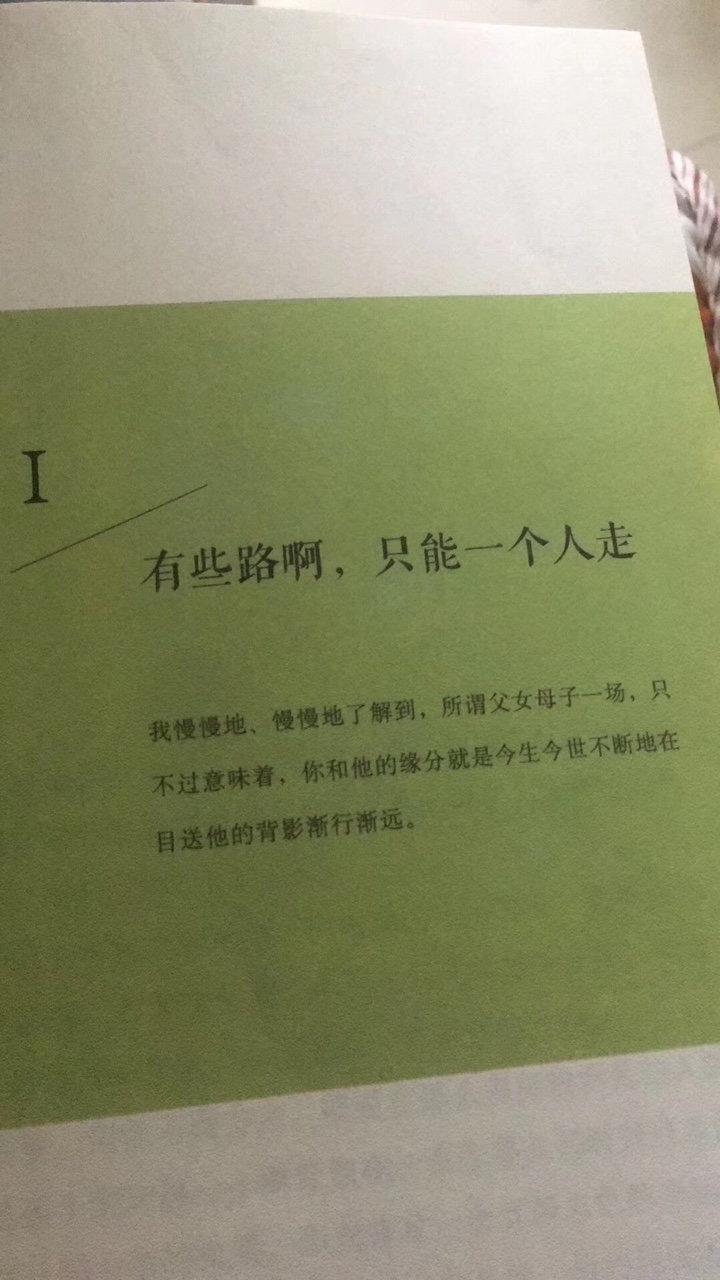 I
有些路啊，只能一个人走
我慢慢地、慢慢地了解到，所谓父女母子一场，只
不过意味着，你和他的缘分就是今生今世不断地在
目送他的背影渐行渐远。